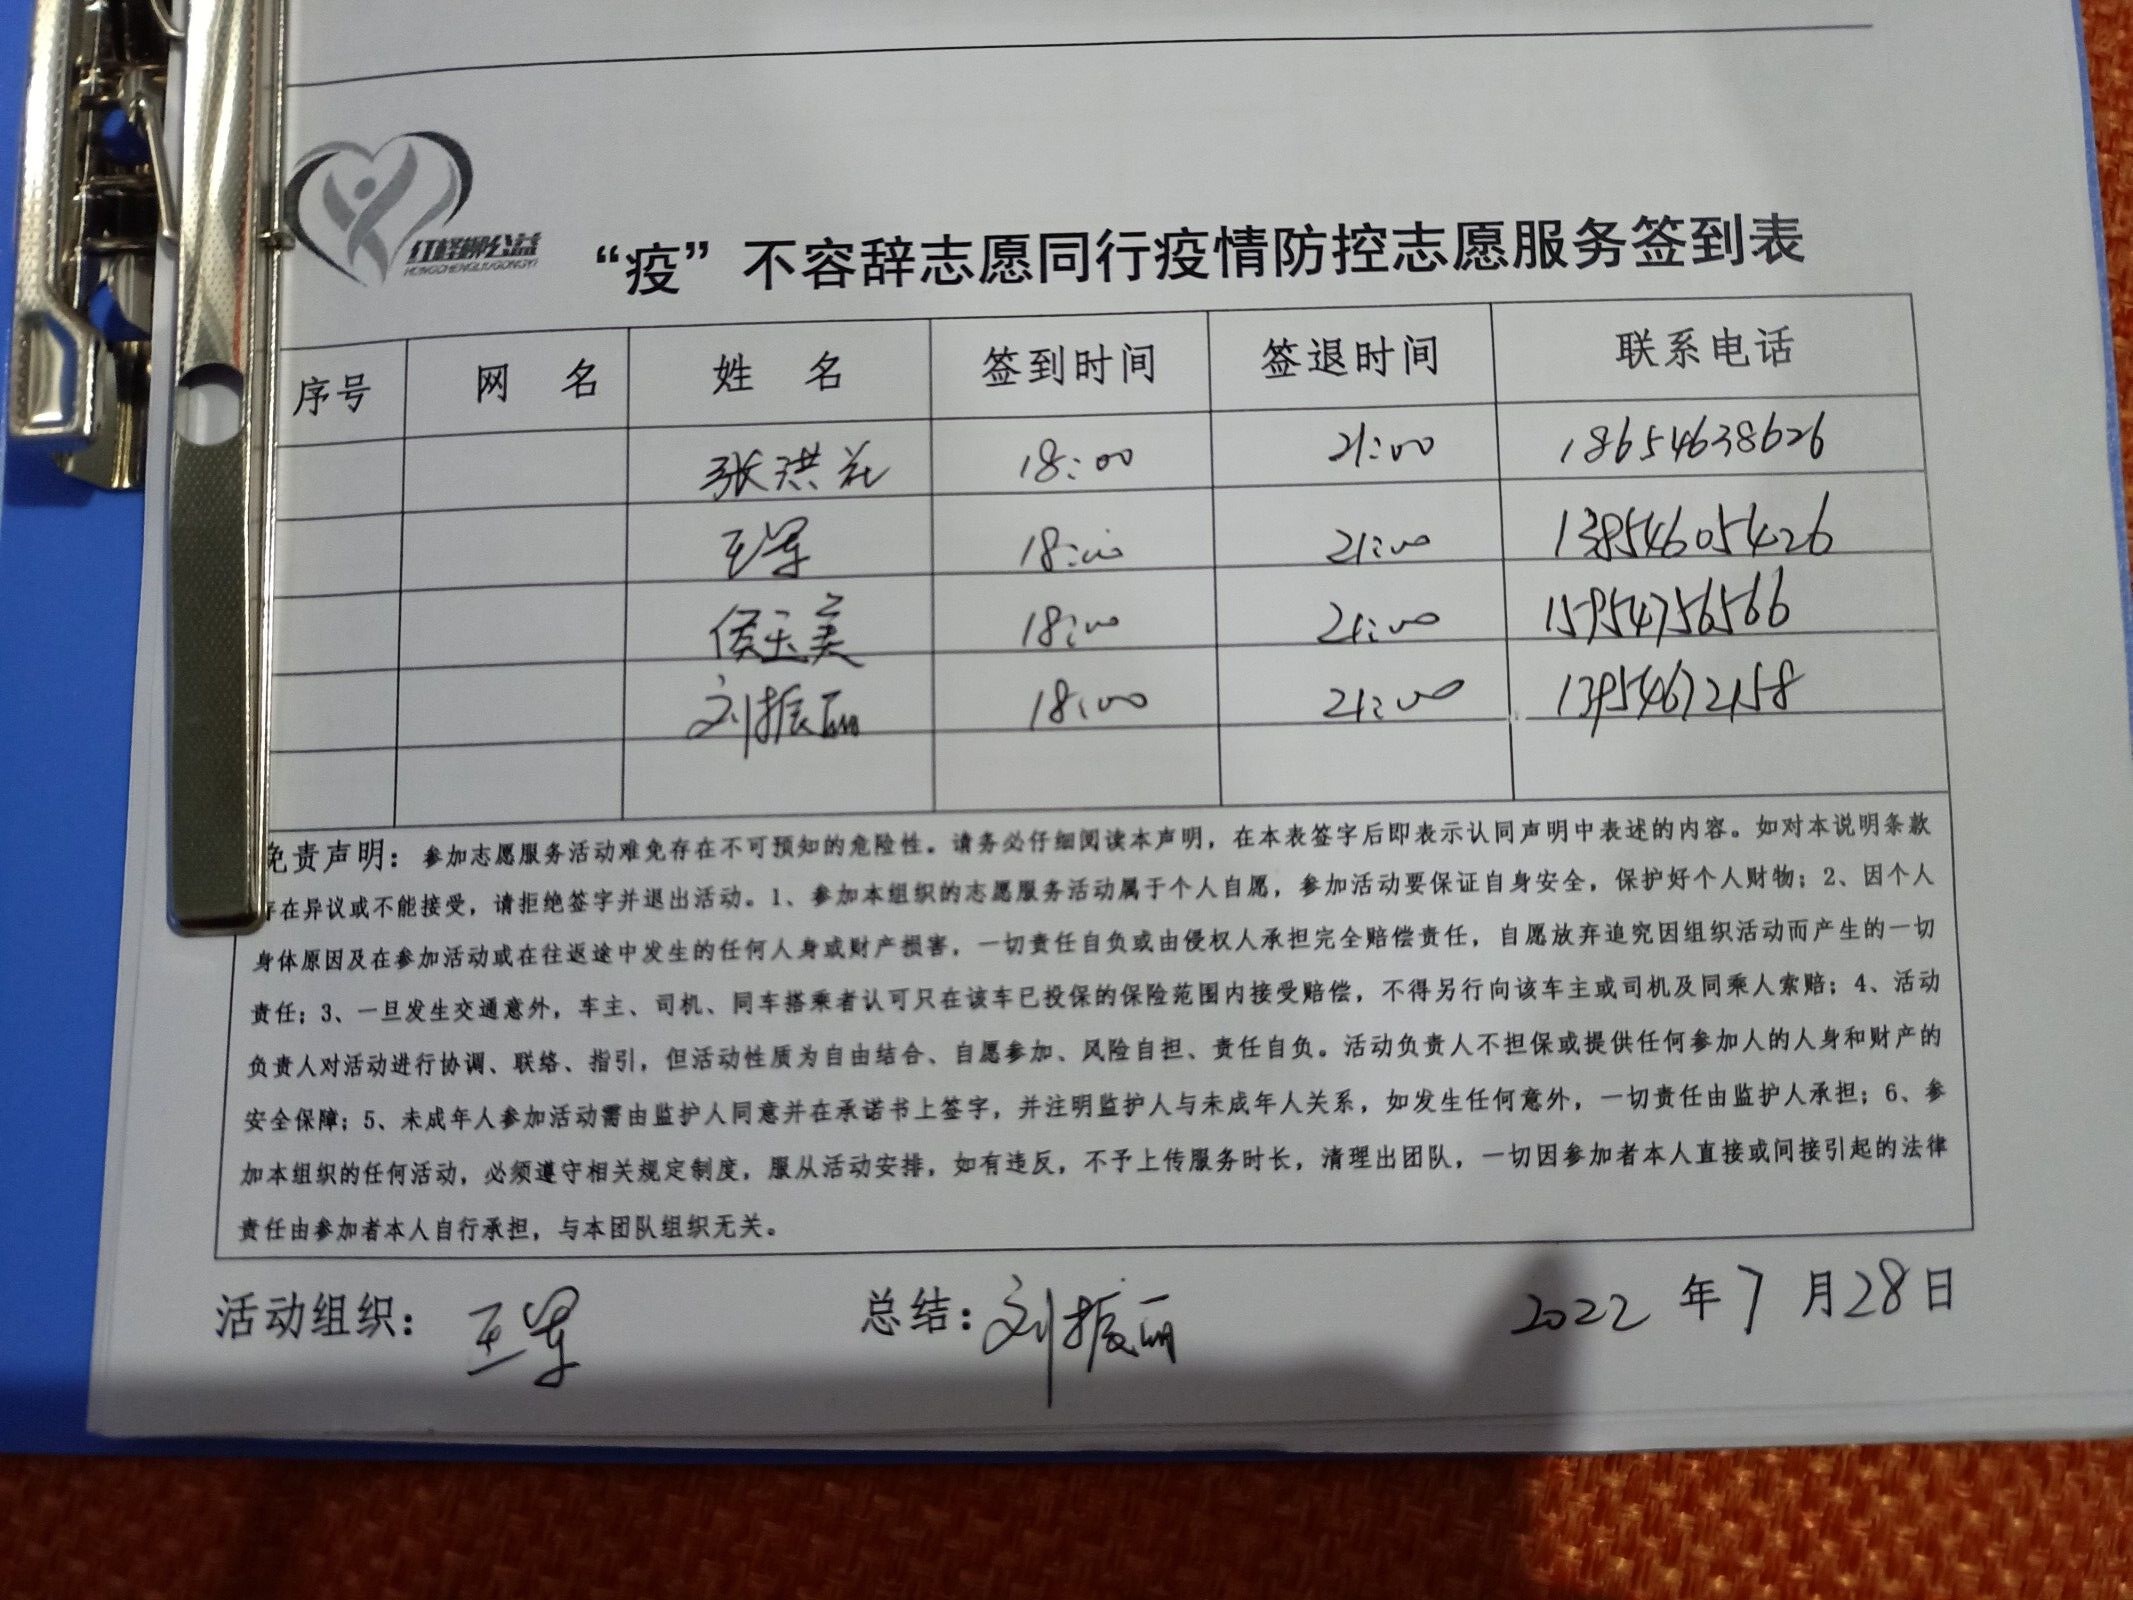 红柽柳公益
HONGCHENGLIUGONGYI
“疫”不容辞志愿同行疫情防控志愿服务签到表
序号 网 名 姓 名 签到时间 签退时间 联系电话
张洪花 18:00 21:00 18654638626
王军 18:00 21:00 13854605426
侯玉美 18:00 21:00 15954756566
刘振丽 18:00 21:00 13954672158
免责声明：参加志愿服务活动难免存在不可预知的危险性。请务必仔细阅读本声明，在本表签字后即表示认同声明中表述的内容。如对本说明条款
存在异议或不能接受，请拒绝签字并退出活动。1、参加本组织的志愿服务活动属于个人自愿，参加活动要保证自身安全，保护好个人财物；2、因个人
身体原因及在参加活动或在往返途中发生的任何人身或财产损害，一切责任自负或由侵权人承担完全赔偿责任，自愿放弃追究因组织活动而产生的一切
责任；3、一旦发生交通意外，车主、司机、同车搭乘者认可只在该车已投保的保险范围内接受赔偿，不得另行向该车主或司机及同乘人索赔；4、活动
负责人对活动进行协调、联络、指引，但活动性质为自由结合、自愿参加、风险自担、责任自负。活动负责人不担保或提供任何参加人的人身和财产的
安全保障；5、未成年人参加活动需由监护人同意并在承诺书上签字，并注明监护人与未成年人关系，如发生任何意外，一切责任由监护人承担；6、参
加本组织的任何活动，必须遵守相关规定制度，服从活动安排，如有违反，不予上传服务时长，清理出团队，一切因参加者本人直接或间接引起的法律
责任由参加者本人自行承担，与本团队组织无关。
活动组织：王军 总结：刘振丽 2022年7月28日